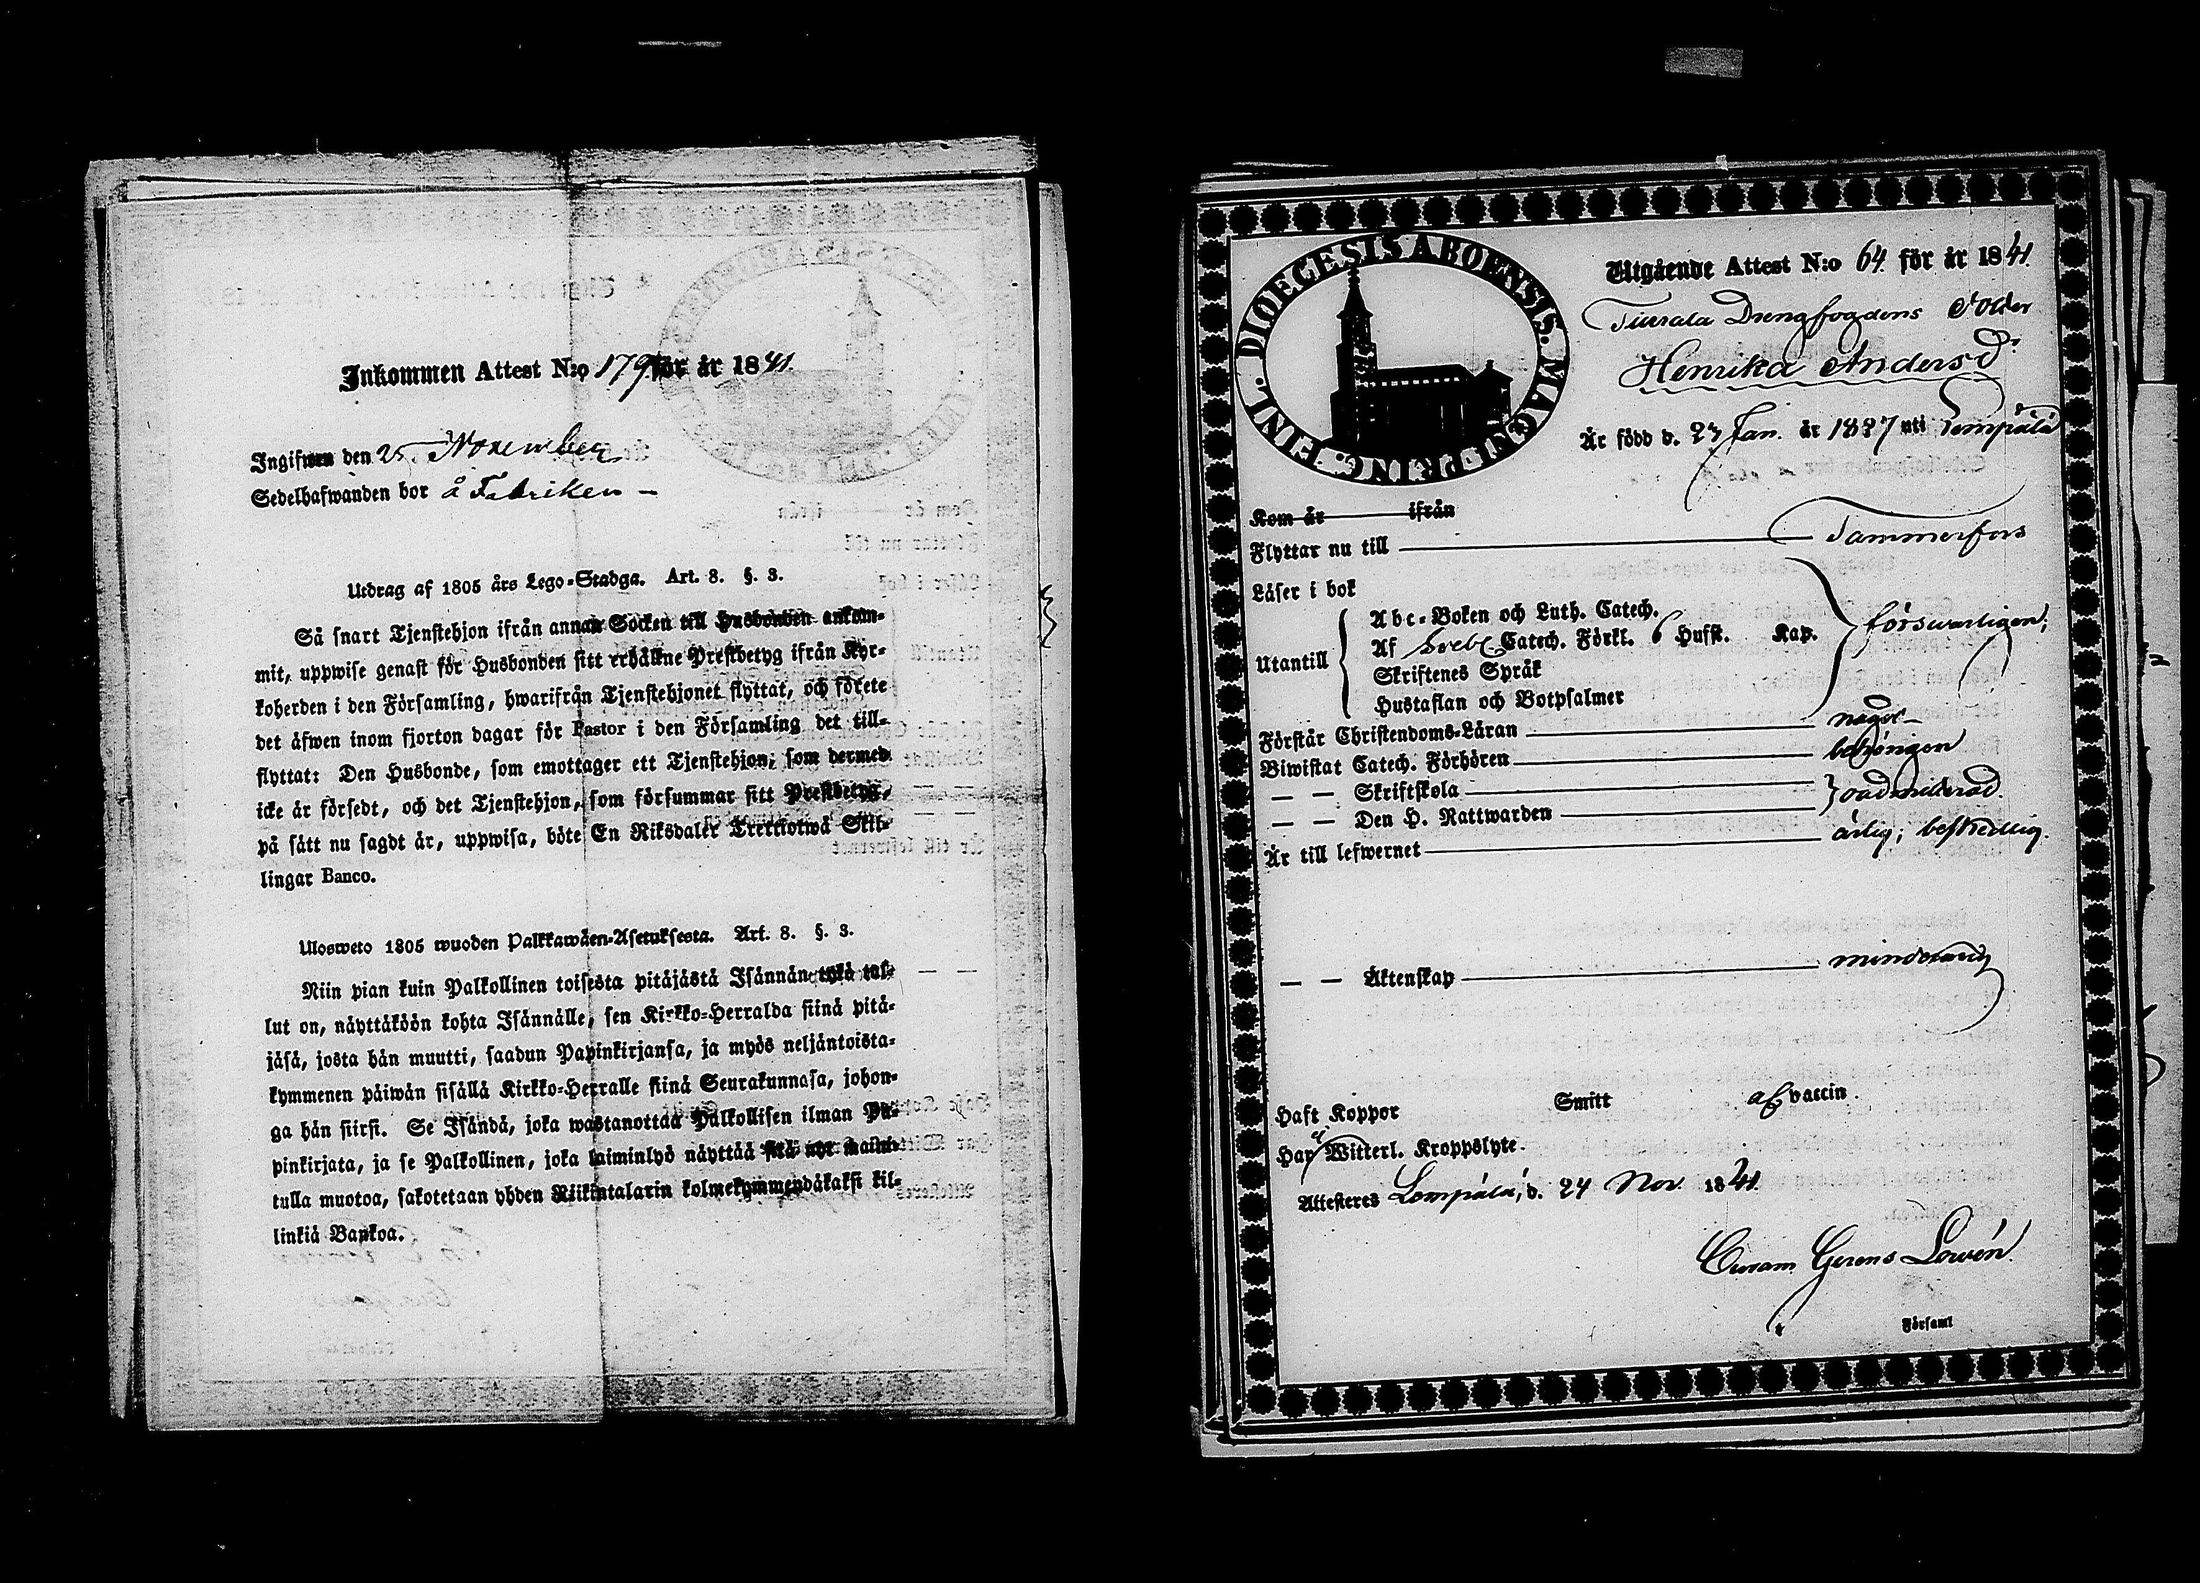 Inkommen Attest N:o 179 för år 1841.
Ingifwen den 25 November
Sedelhafwanden bor å Fabriken –
Utdrag af 1805 års Lego-Stadga. Art. 8. §. 3.
Så snart Tjenstehjon ifrån annan Socken till Husbonden ankom-
mit, uppwise genast för Husbonden sitt erhållne Prestbetyg ifrån Kyr-
koherden i den Församling, hwarifrån Tjenstehjonet flyttat, och förete
det äfwen inom fjorton dagar för Pastor i den Församling det till-
flyttat: Den Husbonde, som emottager ett Tjenstehjon, som dermed
icke är försedt, och det Tjenstehjon, som försummar sitt Prestbetyg,
på sätt nu sagdt är, uppwisa, böte En Riksdaler Trettiotwå Skil-
lingar Banco.
Ulosweto 1805 wuoden Palkkawäen-Asetuksesta. Art. 8. §. 3.
Niin pian kuin Palkollinen toisesta pitäjästä Isännän tykö tul-
lut on, näyttäköön kohta Isännälle, sen Kirkko-Herralda siinä pitä-
jäsä, josta hän muutti, saadun Papinkirjansa, ja myös neljäntoista-
kymmenen päiwän sisällä Kirkko-Herralle siinä Seurakunnasa, johon-
ga hän siirsi. Se Isändä, joka wastanottaa Palkollisen ilman Pa-
pinkirjata, ja se Palkollinen, joka laiminlyö näyttää sitä nyt mainit-
tulla muotoa, sakotetaan yhden Riikintalarin kolmekymmendäkaksi kil-
linkiä Bankoa.
DIOECESIS ABOENSIS. MAGNI PRINC. FINL.
Utgående Attest N:o 64 för år 1841.
Drengfogdens Dotter
Henrika Andersd:r
Är född d. 27 Jan. år 1827 uti Lempälä
Kom år ifrån
Flyttar nu till Tammerfors
Läser i bok
Utantill
Abc-Boken och Luth. Catech.
Af Sveb. Catech. Förkl. 6 Hufst. Kap.
Skriftenes Språk
Hustaflan och Botpsalmer
försvarligen;
Förstår Christendoms-Läran något –
Biwistat Catech. Förhören behörigen
— — Skriftskola
— — Den H. Nattwarden
oadmitterad.
Är till lefwernet ärlig; beskedlig.
— — Äktenskap minderårig
Haft Koppor Smitt af vaccin.
Har ej Witterl. Kroppslyte.
Attesteres Lempälä, d. 24 Nov. 1841.
Curam Gerens Lovén
Församl